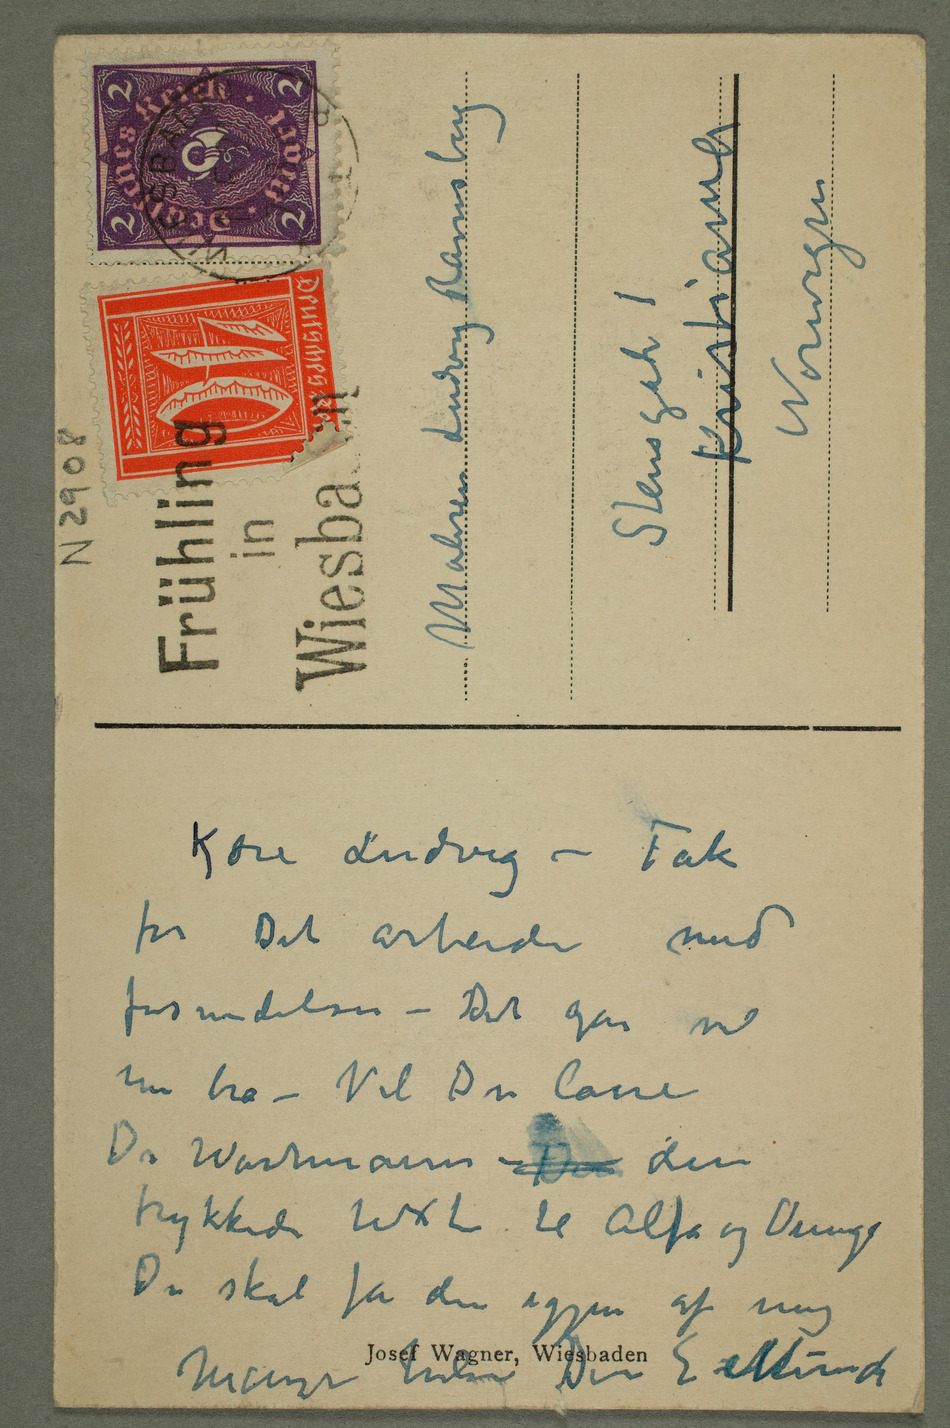 2 Deutsches Reich 2
WIESBADEN
Deutsches Reich
10
N 2908
Frühling
in
Wiesbaden
Maleren Ludvig Ravensberg
Stensgade 1
Kristiania
Norwegen
Kjøre Ludvig – Tak
for Det arbeide med
forsendelsen – Det går vel
nu bra – Vil Du låne
Dr Wartmann – den
trykkede text til Alfa og Omega
Du skal få den igjen af mig
Mange hilsen Din E Munch
Josef Wagner, Wiesbaden